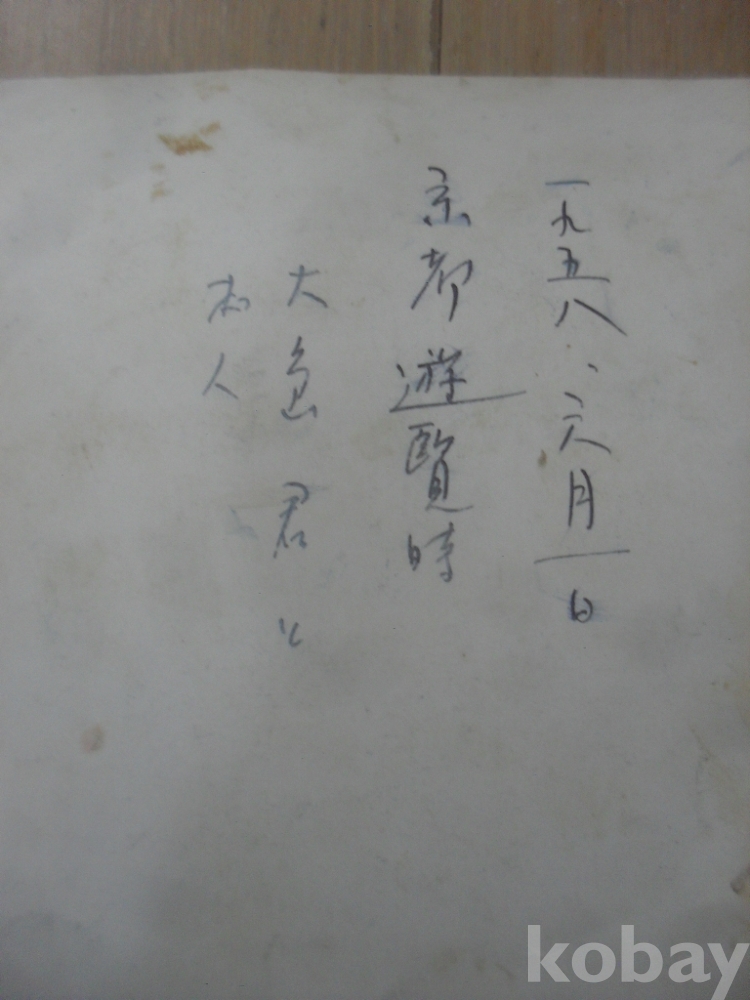 一九五八、六月一日
京都遊覽時
大島君と
本人
kobay